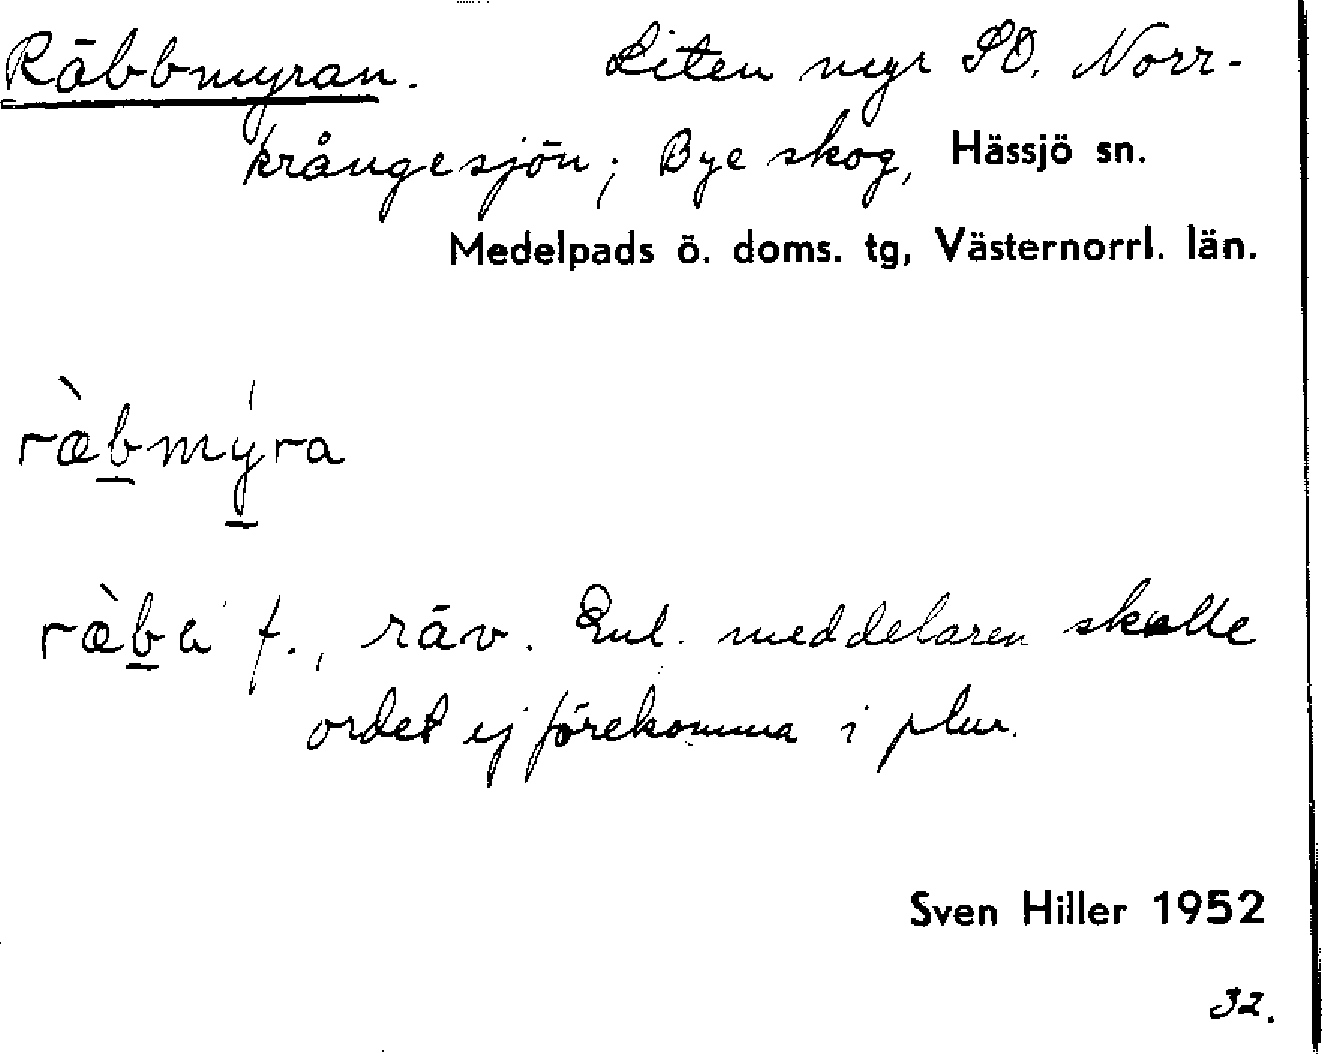 Räbbmyran. Liten myr SO. Norr-
krångesjön; Bye skog, Hässjö sn.
Medelpads ö. doms. tg, Västernorrl. län.
ræ̀bmy̍ra
ræ̀ba f., räv. Enl. meddelaren skulle
ordet ej förekomma i plur.
Sven Hiller 1952
32.